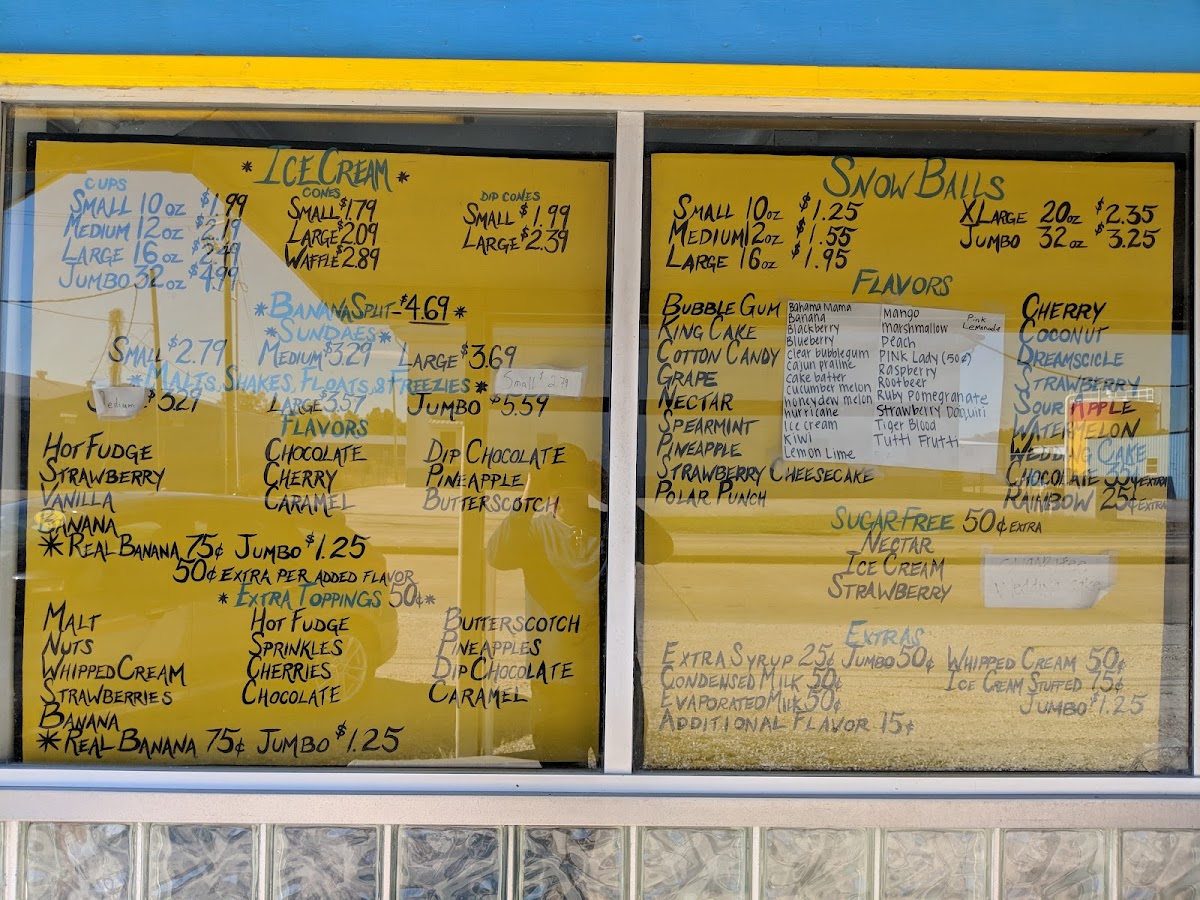 *ICE CREAM*
CUPS
SMALL 10 OZ $1.99
MEDIUM 12 OZ $2.19
LARGE 16 OZ $2.49
JUMBO 32 OZ $4.99
CONES
SMALL $1.79
LARGE $2.09
WAFFLE $2.89
DIP CONES
SMALL $1.99
LARGE $2.39
*BANANA SPLIT-$4.69*
SUNDAES*
SMALL $2.79 MEDIUM $3.29 LARGE $3.69
*MALTS, SHAKES, FLOATS, & FREEZIES*
Small $2.79
Medium $3.29 LARGE 3.57 JUMBO $5.59
FLAVORS
HOT FUDGE CHOCOLATE DIP CHOCOLATE
STRAWBERRY CHERRY PINEAPPLE
VANILLA CARAMEL BUTTERSCOTCH
BANANA
*REAL BANANA 75¢ JUMBO $1.25
50¢ EXTRA PER ADDED FLAVOR
*EXTRA TOPPINGS 50¢*
MALT HOT FUDGE BUTTERSCOTCH
NUTS SPRINKLES PINEAPPLES
WHIPPED CREAM CHERRIES DIP CHOCOLATE
STRAWBERRIES CHOCOLATE CARAMEL
BANANA
*REAL BANANA 75¢ JUMBO $1.25
SNOW BALLS
SMALL 10 OZ $1.25
MEDIUM 12 OZ $1.55
LARGE 16 OZ $1.95
XLARGE 20 OZ $2.35
JUMBO 32 OZ $3.25
FLAVORS
BUBBLE GUM
KING CAKE
COTTON CANDY
GRAPE
NECTAR
SPEARMINT
PINEAPPLE
STRAWBERRY CHEESECAKE
POLAR PUNCH
Bahama Mama
Banana
Blackberry
Blueberry
clear bubblegum
cajun praline
cake batter
cucumber melon
honeydew melon
hurricane
Ice cream
Kiwi
Lemon Lime
Mango
Marshmallow
Peach
PINK Lady (50¢)
Raspberry
Rootbeer
Ruby Pomegranate
Strawberry Daquiri
Tiger Blood
Tutti Frutti
Pink
Lemonade
CHERRY
COCONUT
DREAMSCICLE
STRAWBERRY
SOUR APPLE
WATERMELON
WEDDING CAKE
CHOCOLATE 35¢ EXTRA
RAINBOW 25¢ EXTRA
SUGAR-FREE 50¢ EXTRA
NECTAR
ICE CREAM
STRAWBERRY
Wedding Cake
EXTRAS
EXTRA SYRUP 25¢ JUMBO 50¢
CONDENSED MILK 50¢
EVAPORATED MILK 50¢
ADDITIONAL FLAVOR 15¢
WHIPPED CREAM 50¢
ICE CREAM STUFFED 75¢
JUMBO $1.25